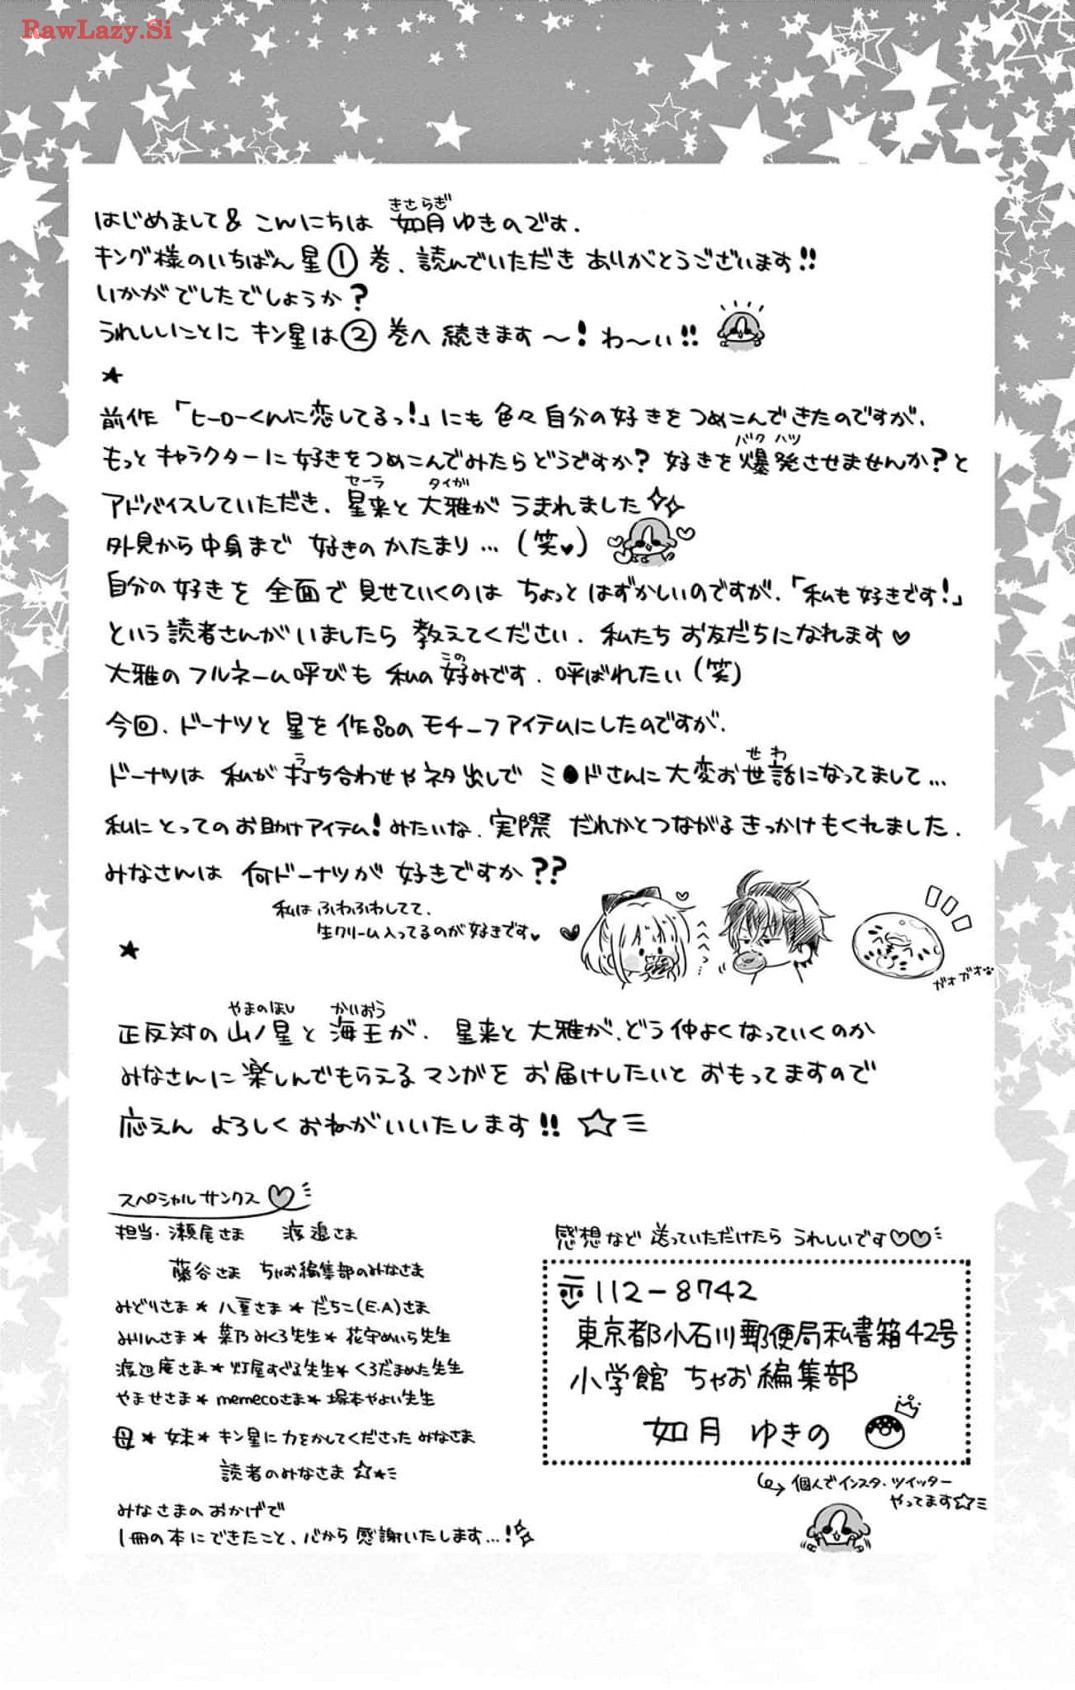 RawLazy.Si
はじめまして& こんにちは 如月ゆきのです.
きさらぎ
キング様のいちばん星①巻、読んでいただき ありがとうございます!!
いかがでしたでしょうか?
うれしいことに キン星は②巻へ 続きます〜! わ〜い!!
★
前作「ヒーローくんに恋してるっ!」にも 色々自分の好きをつめこんできたのですが、
もっとキャラクターに好きをつめこんでみたらどうですか? 好きを爆発させませんか?と
バクハツ
アドバイスしていただき、星来と大雅が うまれました
セーラ タイガ
外見から中身まで 好きのかたまり…(笑♥)
自分の好きを 全面で見せていくのは ちょっとはずかしいのですが、「私も好きです!」
という読者さんがいましたら 教えてください. 私たちお友だちになれます♥
大雅のフルネーム呼びも 私の好みです. 呼ばれたい(笑)
この
今回、ドーナツと星を作品のモチーフアイテムにしたのですが、
ドーナツは 私が打ち合わせやネタ出しで ミ●ドさんに大変お世話になってまして…
う せわ
私にとってのお助けアイテム!みたいな、実際 だれかとつながるきっかけもくれました.
みなさんは 何ドーナツが 好きですか??
私は ふわふわしてて、
生クリーム入ってるのが好きです♥
へへへっ…
ガオガオな
★
正反対の山ノ星と海王が、星来と大雅が、どう仲よくなっていくのか
やまのほし かいおう
みなさんに楽しんでもらえるマンガを お届けしたいと おもってますので
応えん よろしくおねがいいたします!! ☆
スペシャルサンクス♡
担当・瀬尾さま 渡邉さま
藤谷さま ちゃお編集部のみなさま
みどりさま★八重さま★だちこ(E.A)さま
みりんさま★菜乃みくろ先生★花守めいら先生
渡辺度さま★灯屋すぐる先生★くろだまめた先生
やませさま★memecoさま★塚本やよい先生
母★妹★キン星に力をかしてくださったみなさま
読者のみなさま☆★
みなさまのおかげで
1冊の本にできたこと、心から感謝いたします…!
感想など 送っていただけたら うれしいです♡♡
〒112-8742
東京都小石川郵便局私書箱42号
小学館 ちゃお編集部
如月 ゆきの
個人でインスタ・ツイッター
やってます☆